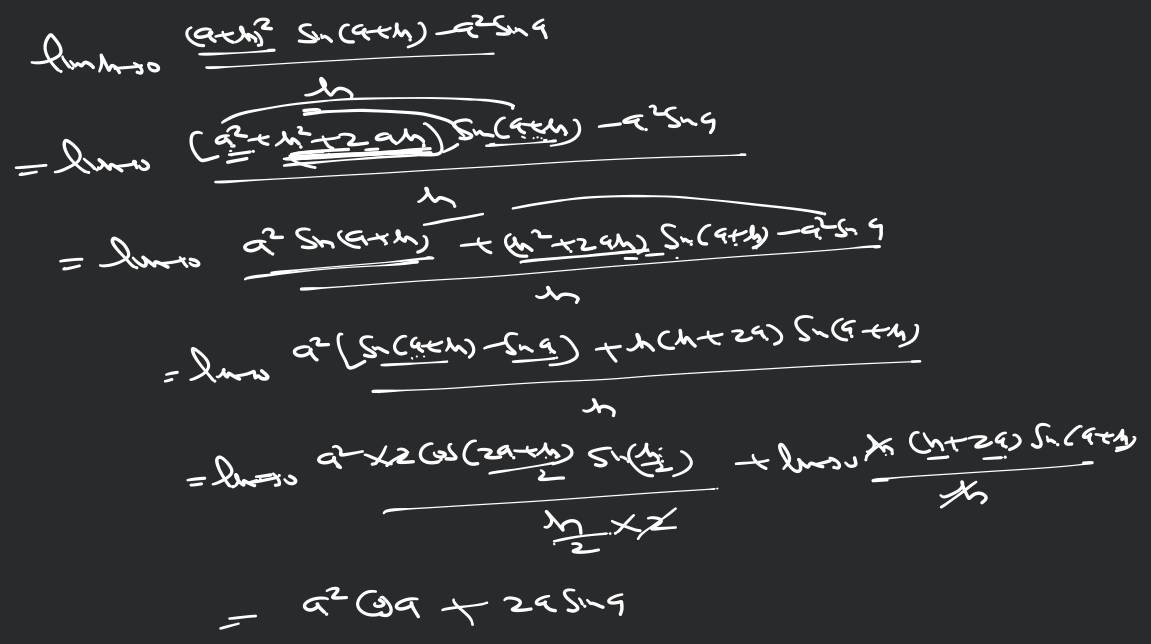 lim h→0 (a+h)² Sin(a+h) - a² Sin a / h
= lim h→0 [a² + h² + 2ah] Sin(a+h) - a² Sin a / h
= lim h→0 a² Sin(a+h) + (h² + 2ah) Sin(a+h) - a² Sin a / h
= lim h→0 a² [Sin(a+h) - Sin a] + h(h + 2a) Sin(a+h) / h
= lim h→0 a² × 2 Cos (2a+h)/2 Sin(h/2) / h/2 × 2 + lim h→0 h (h+2a) Sin(a+h) / h
= a² Cos a + 2a Sin a